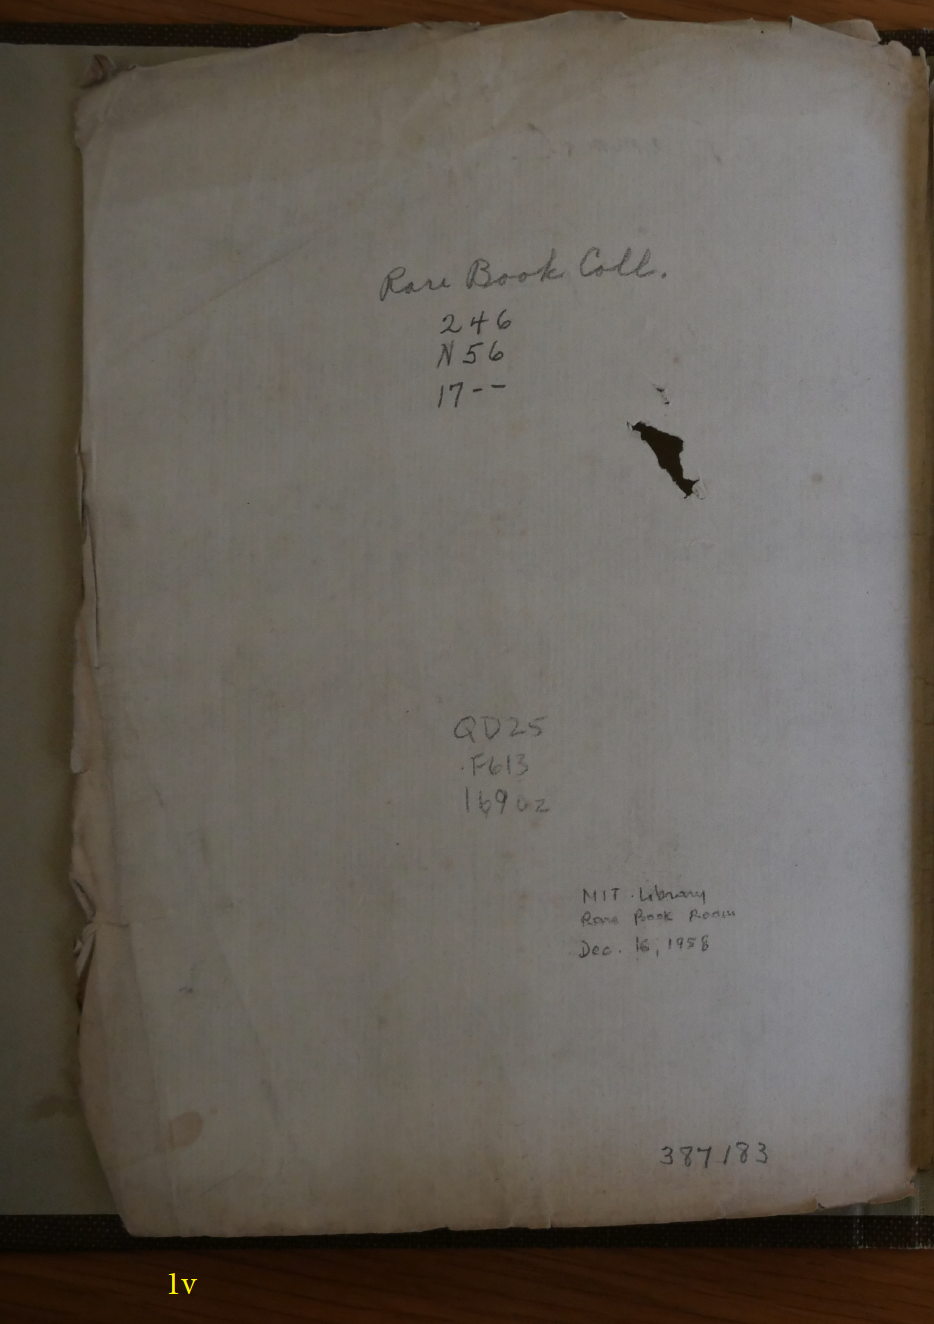 Rare Book Coll.
246
N56
17--
QD25
.F613
1690z
MIT Library
Rare Book Room
Dec. 16, 1958
387183
1v